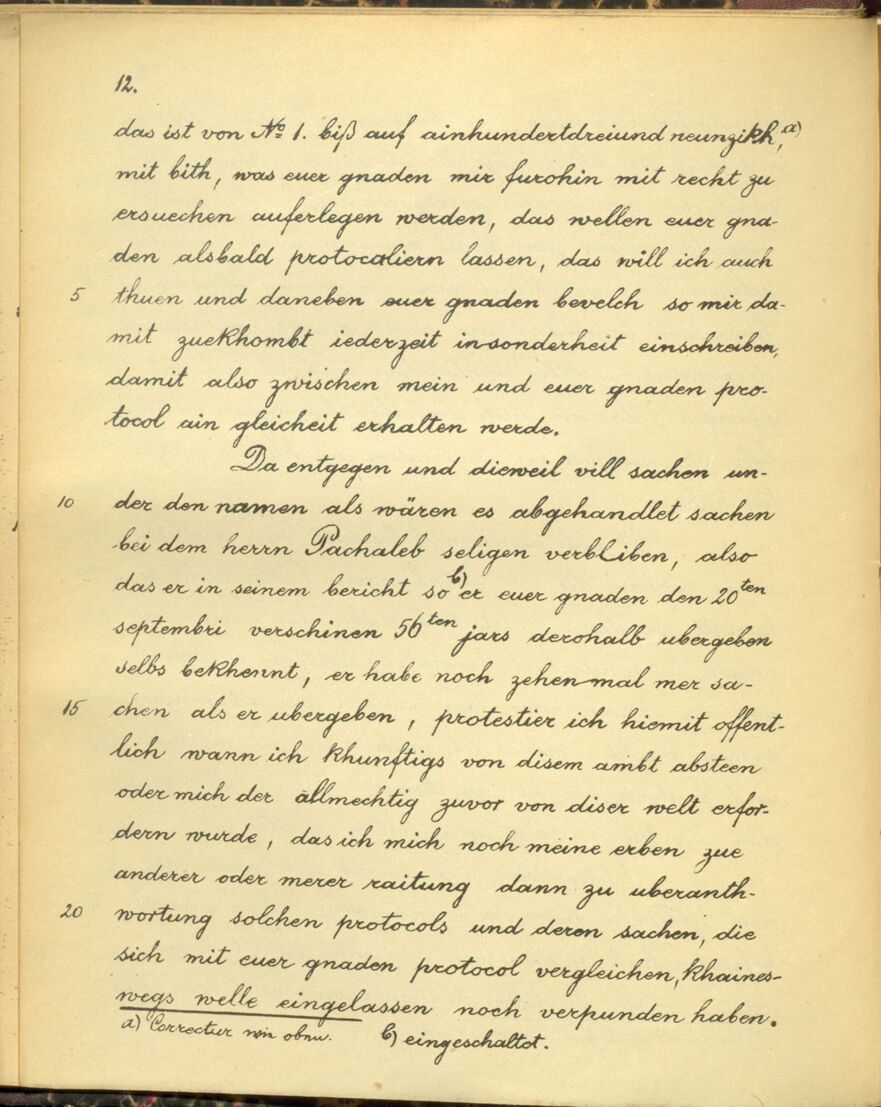 12.
das ist von No 1. biß auf ainhundertdreiund neunzikh, a)
mit bith, was euer gnaden mir furohin mit recht zu
ersuechen auferlegen werden, das wellen euer gna-
den alsbald protocaliern lassen, das will ich auch
5 thuen und daneben euer gnaden bevelch so mir da-
mit zuekhombt iederzeit in sonderheit einschreiben,
damit also zwischen mein und euer gnaden pro-
tocol ain gleicheit erhalten werde.
Da entgegen und dieweil vill sachen un-
10 der den namen als wären es abgehandlet sachen
bei dem herrn Pachaleb seligen verbliben, also
das er in seinem bericht so b) er euer gnaden den 20ten
septembri verschinen 56ten jars derohalb ubergeben
selbs bekhennt, er habe noch zehen mal mer sa-
15 chen als er ubergeben, protestier ich hiemit offent-
lich wann ich khunftigs von disem ambt absteen
oder mich der allmechtig zuvor von diser welt erfor-
dern wurde, das ich mich noch meine erben zue
anderer oder merer raitung dann zu uberanth-
20 wortung solchen protocols und deren sachen, die
sich mit euer gnaden protocol vergleichen, khaines-
wegs welle eingelassen noch verpunden haben.
a) Correctur wie oben. b) eingeschaltet.